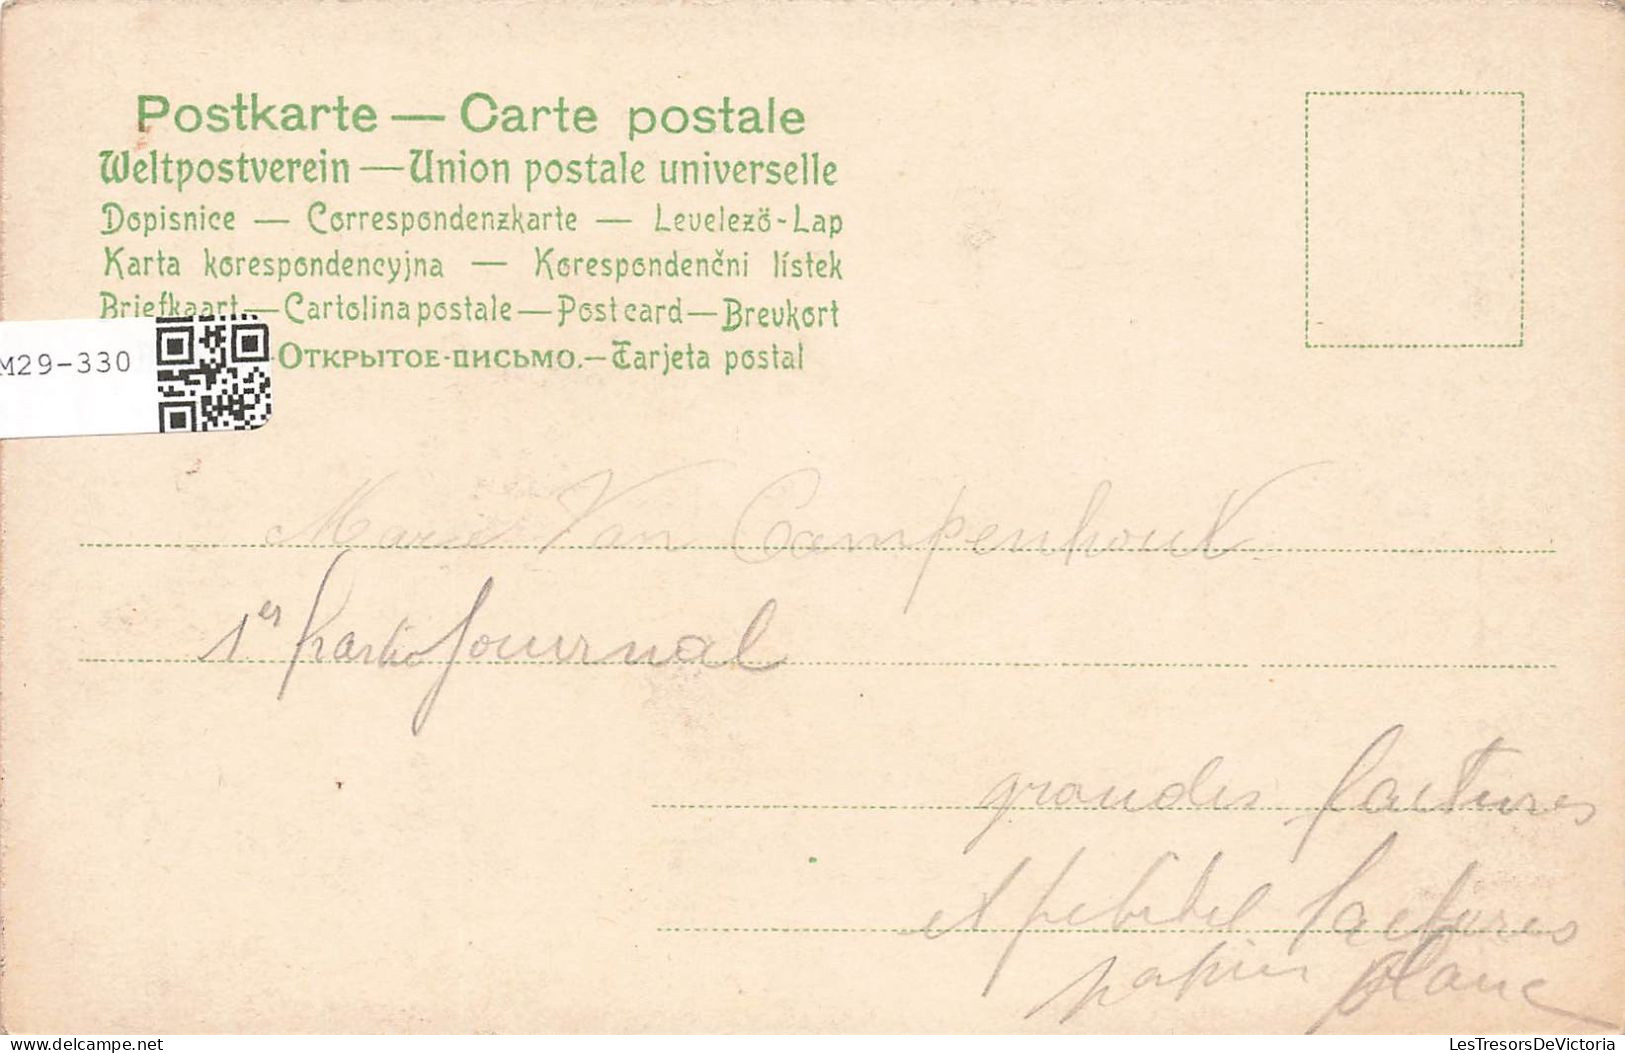 Postkarte — Carte postale
Weltpostverein — Union postale universelle
Dopisnice — Correspondenzkarte — Levelező-Lap
Karta korespondencyjna — Korespondenční lístek
Briefkaart — Cartolina postale — Post card — Brevkort
M29-330
ОТКРЫТОЕ-ПИСЬМО. — Tarjeta postal
Marie Van Campenhout
1er Journal
grandes factures
et factures
papier blanc
LesTresorsDeVictoria
delcampe.net